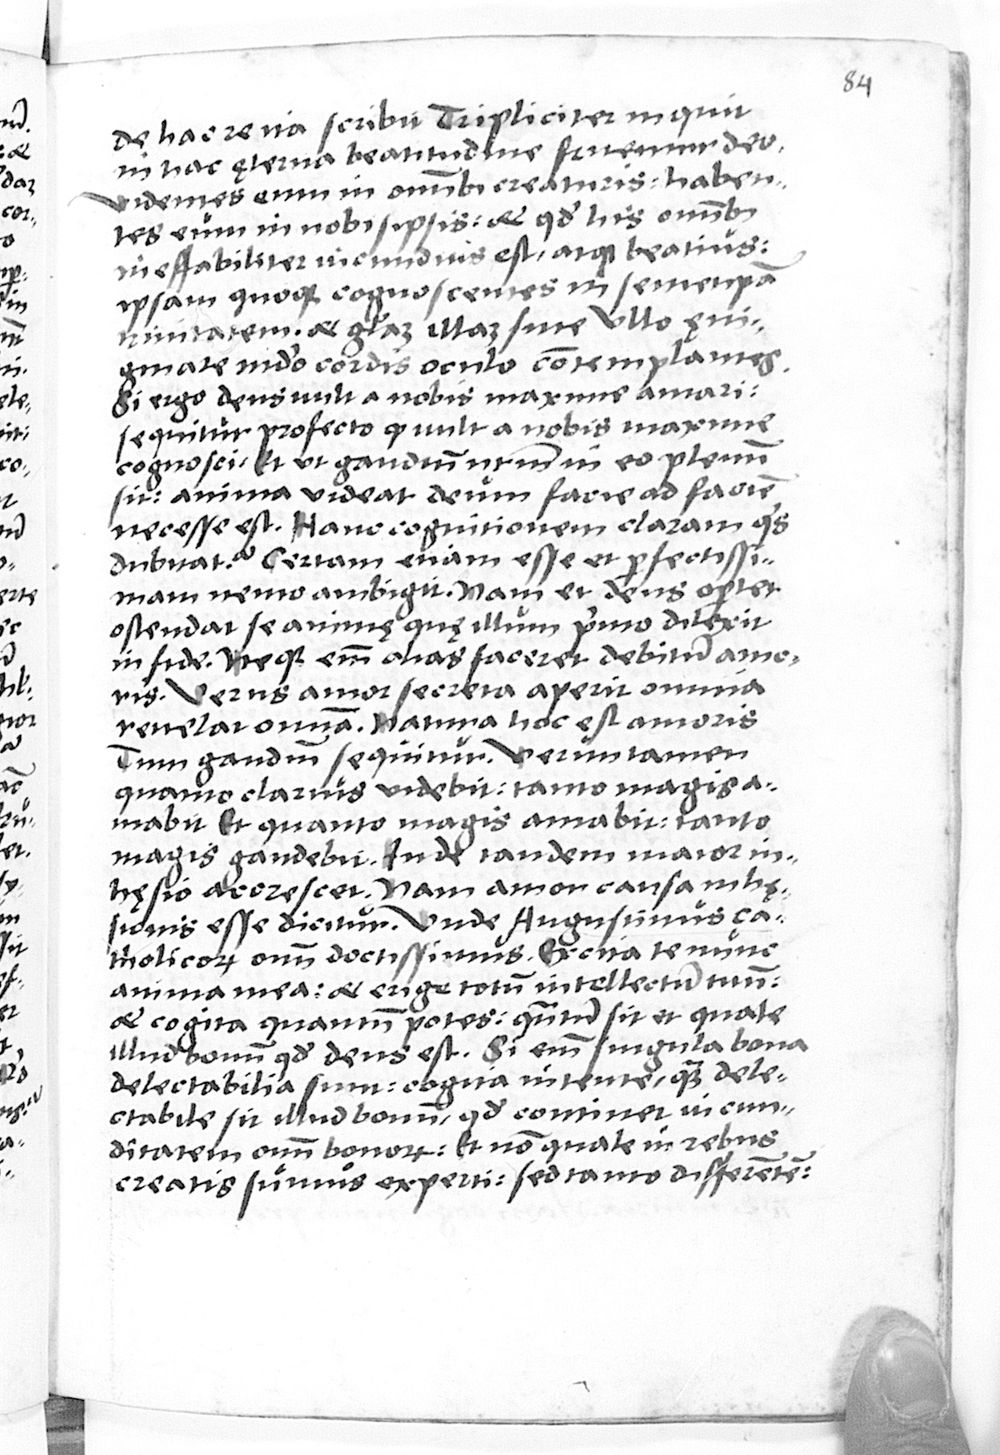 84
de hac re ita scribit Tripliciter inquit
in hac ęterna beatitudine fruemur deo.
Videntes eum in omībꝰ creaturis: haben-
tes eum in nobisipsis: & qđ his omībꝰ
ineffabiliter iucundius est, atqꝫ beatius:
ipsam quoqꝫ cognoscentes in semetip̄ā
trinitatem. & gl̄aꝫ illaꝫ sine Vllo ęni-
gmate mūdo cordis oculo cōtemplantes.
Si ergo deus uult a nobis maxime amari:
sequitur profecto ꝙ uult a nobis maxime
cognosci. Et ut gaudiū nr̄m in eo plenū
sit: anima videat deum facie ad faciē
necesse est. Hanc cognitionem claram q̄s
dubitat? Certam etiam esse et ꝑfectissi-
mam nemo ambigit. Nam et deus oꝑtet
ostendat se animę quę illum primo dilexit
in fide. Neqꝫ em̄ alias faceret debitū amo-
ris. Verus amor secreta aperit omnia
reuelat omnia. Natura hoc est amoris
Tum gaudiū sequitur. Veruntamen
quanto clarius videbit: tanto magis a-
mabit Et quanto magis amabit: tanto
magis gaudebit. Inde tandem maior in-
hęsio accrescet. Nam amor causa inhę-
sionis esse dicitur. Vnde Augustinus ca-
tholicoꝝ om̄ doctissimus. Excita te nunc
anima mea: & erige totū intellectū tuū:
& cogita quantū potes: quātū sit et quale
illud bonū qđ deus est. Si em̄ singula bona
delectabilia sunt: cogita intente, quā dele-
ctabile sit illud bonū, qđ continet iucun-
ditatem om̄ bonoꝝ: Et nō quale in rebus
creatis sumus experti: sed tanto differētē: